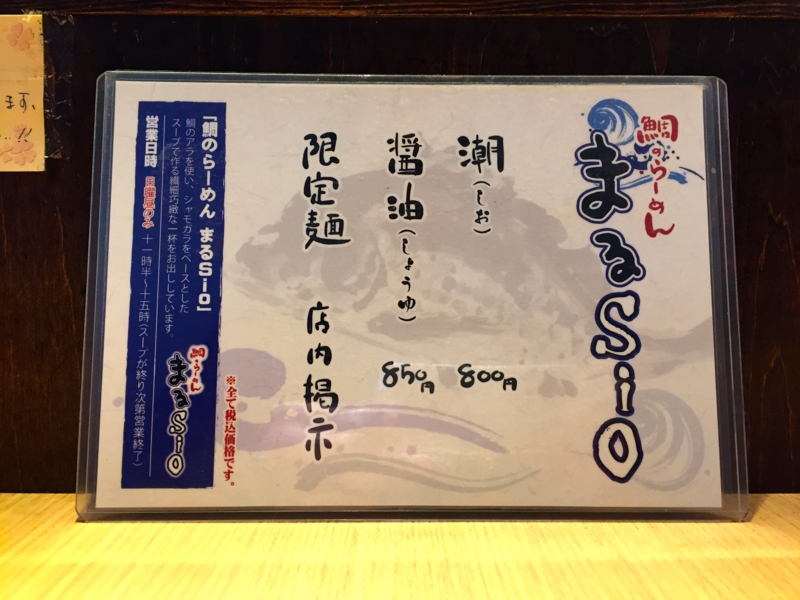 鯛のらーめん
まるSiO
潮(しお) 800円
醤油(しょうゆ) 850円
限定麺 店内掲示
※全て税込価格です。
「鯛のらーめん まるSiO」
鯛のアラを使い、シャモガラをベースとした
スープで作る繊細巧緻な一杯をお出ししています。
営業日時 日曜昼のみ 十一時半〜十五時(スープが終り次第営業終了)
鯛のらーめん
まるSiO
ます、
!!